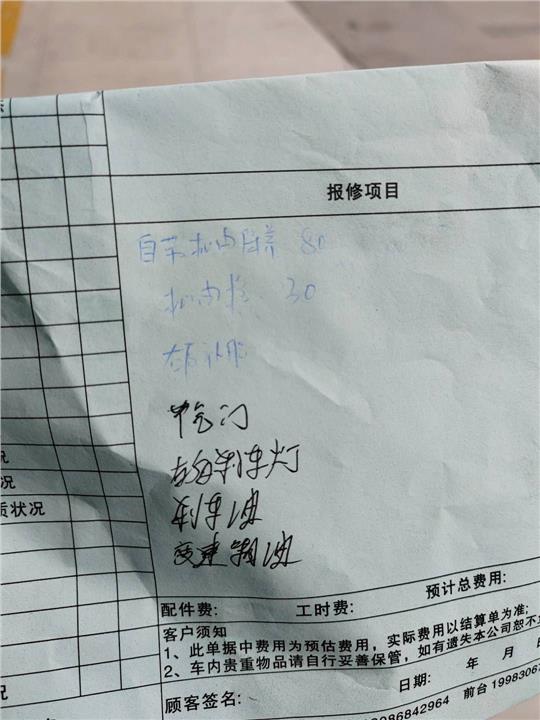 报修项目
自带机油保养 80
机油格 30
节气门
刹车灯
刹车油
变速箱油
况
况
质状况
况
预计总费用:
配件费: 工时费:
客户须知
1、此单据中费用为预估费用,实际费用以结算单为准;
2、车内贵重物品请自行妥善保管,如有遗失本公司恕不
日期: 年 月
顾客签名:
086842964 前台 1998306